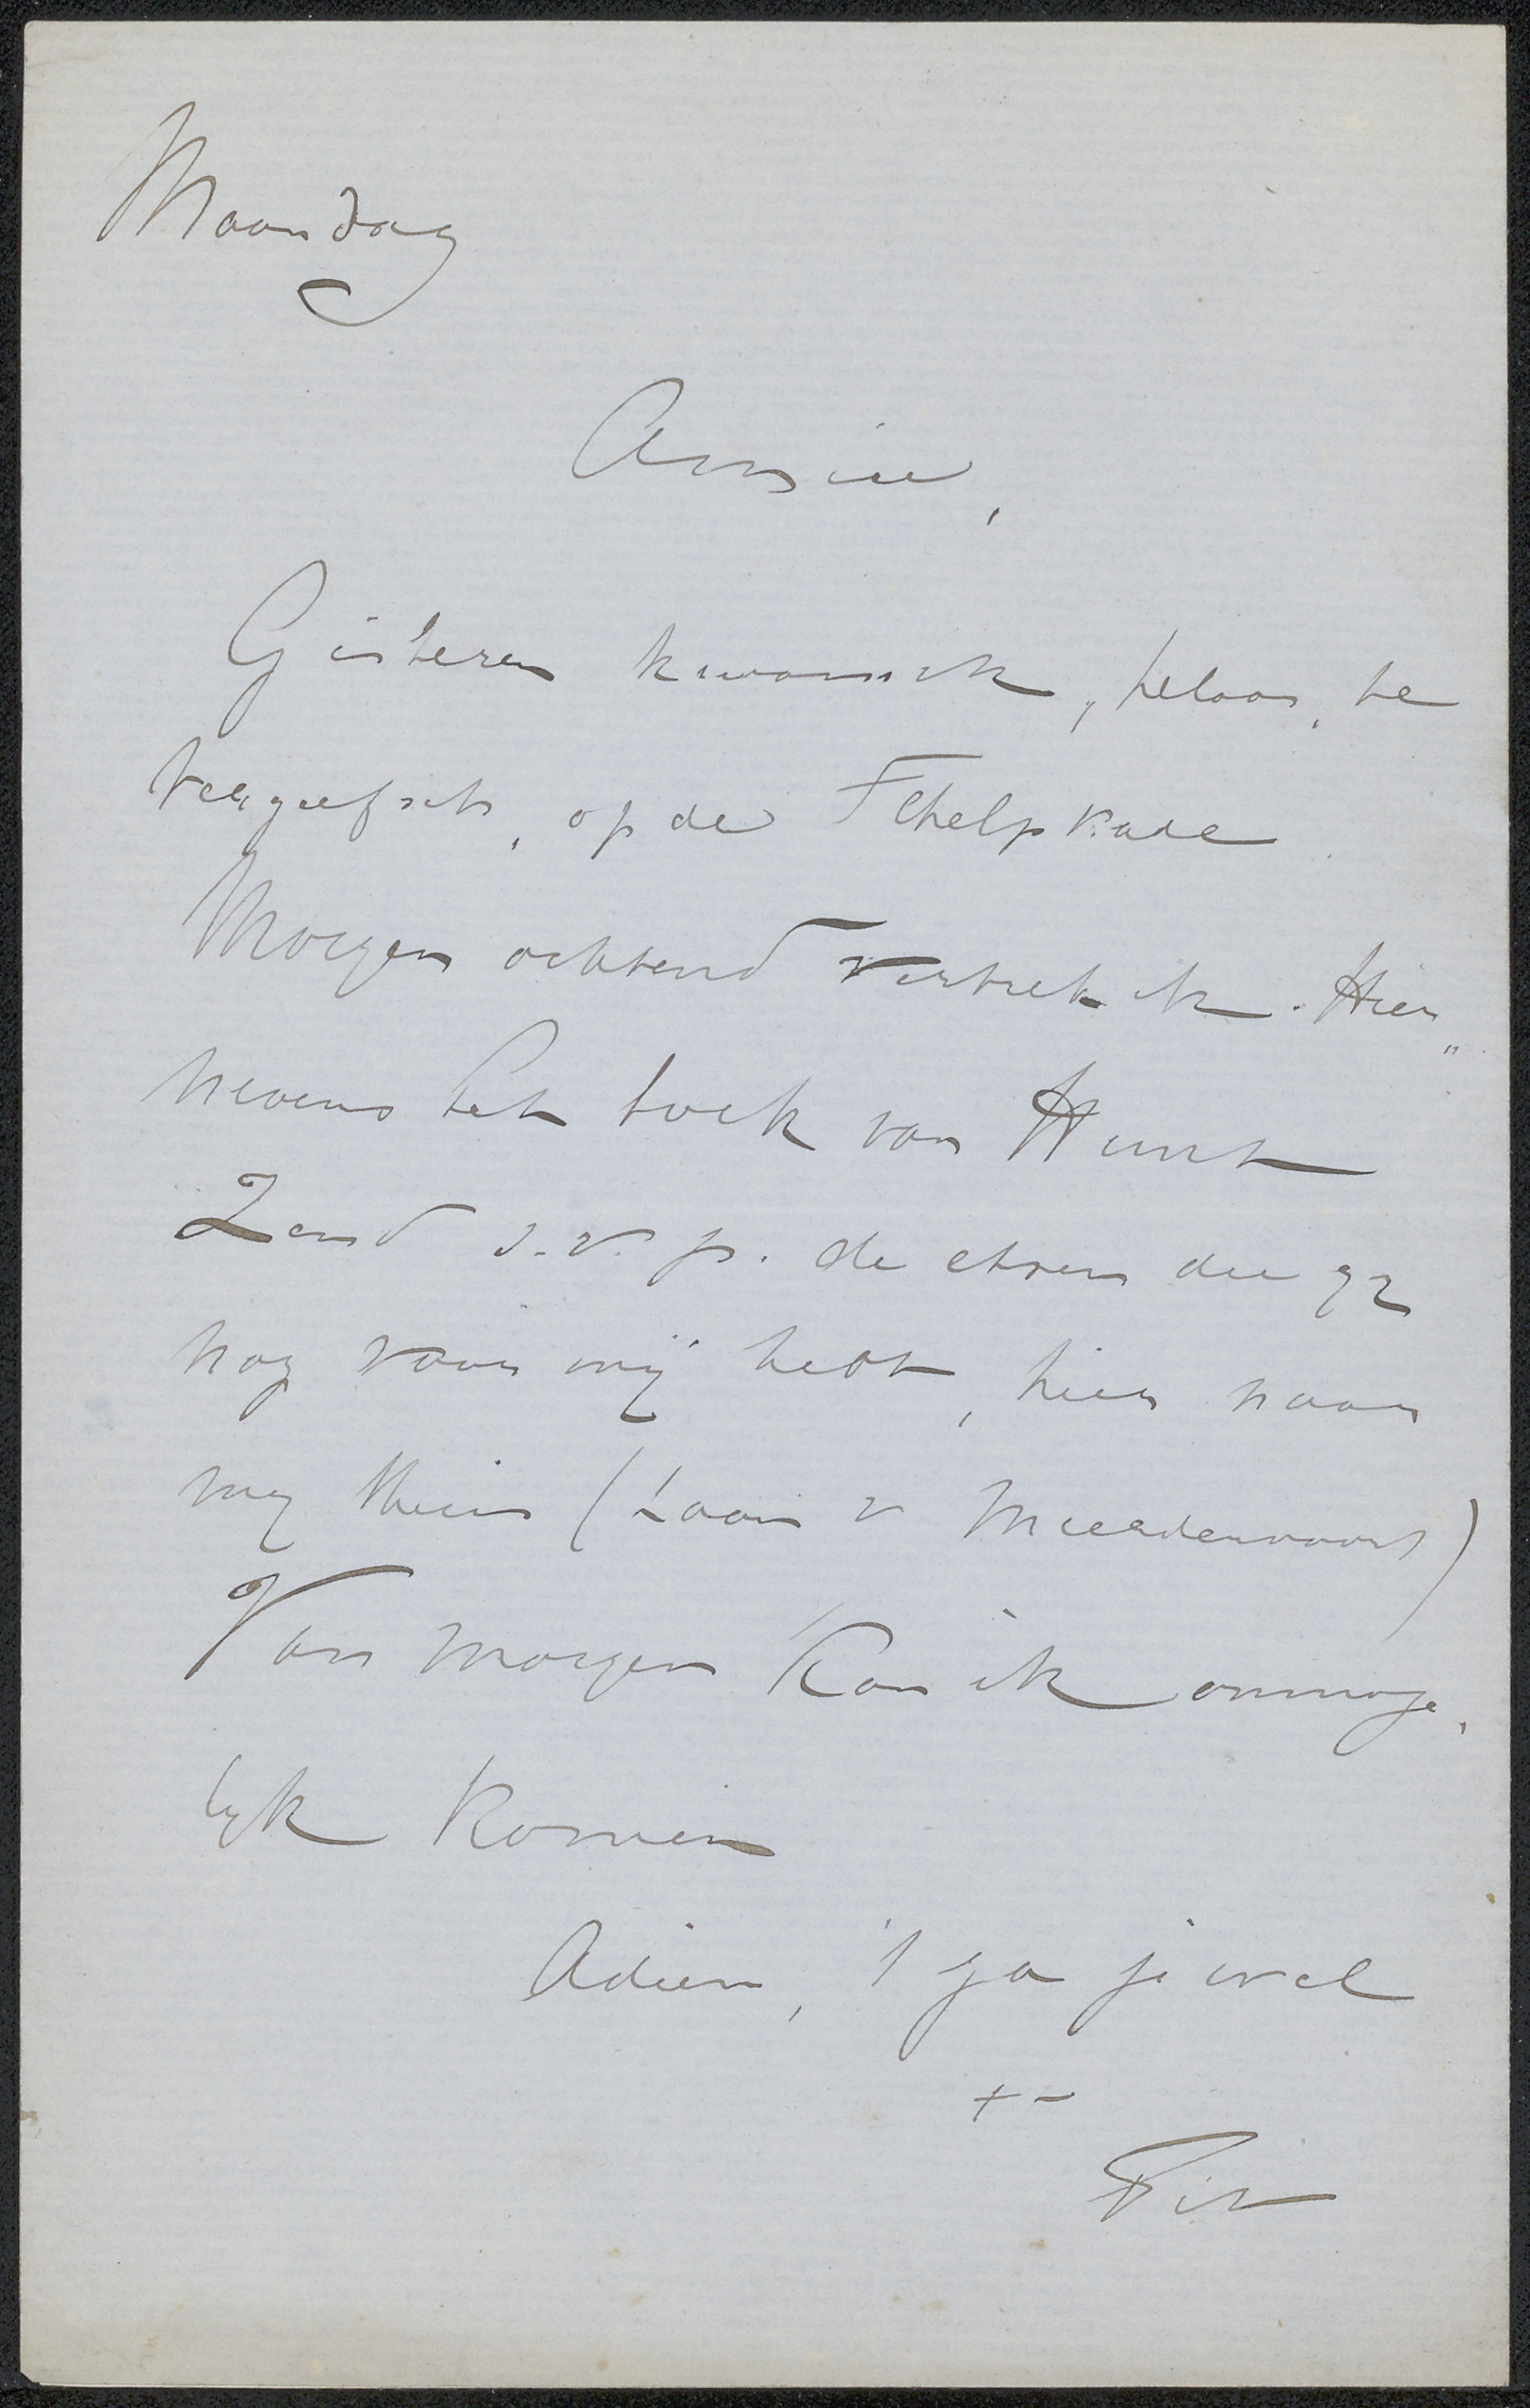 Maandag
Amice,
Gisteren kwam ik, helaas, te
vergeefsch, op de Schelpkade.
Morgen ochtend vertrek ik. Hier„
nevens het boek van Hunt
Zend s.v.p. de etsen die gy
nog van mij hebt, hier naar
my thuis (Laan v Meerdervoort)
Van morgen kan ik onmoge„
lyk komen
Adieu, 't ga je wel
+ -